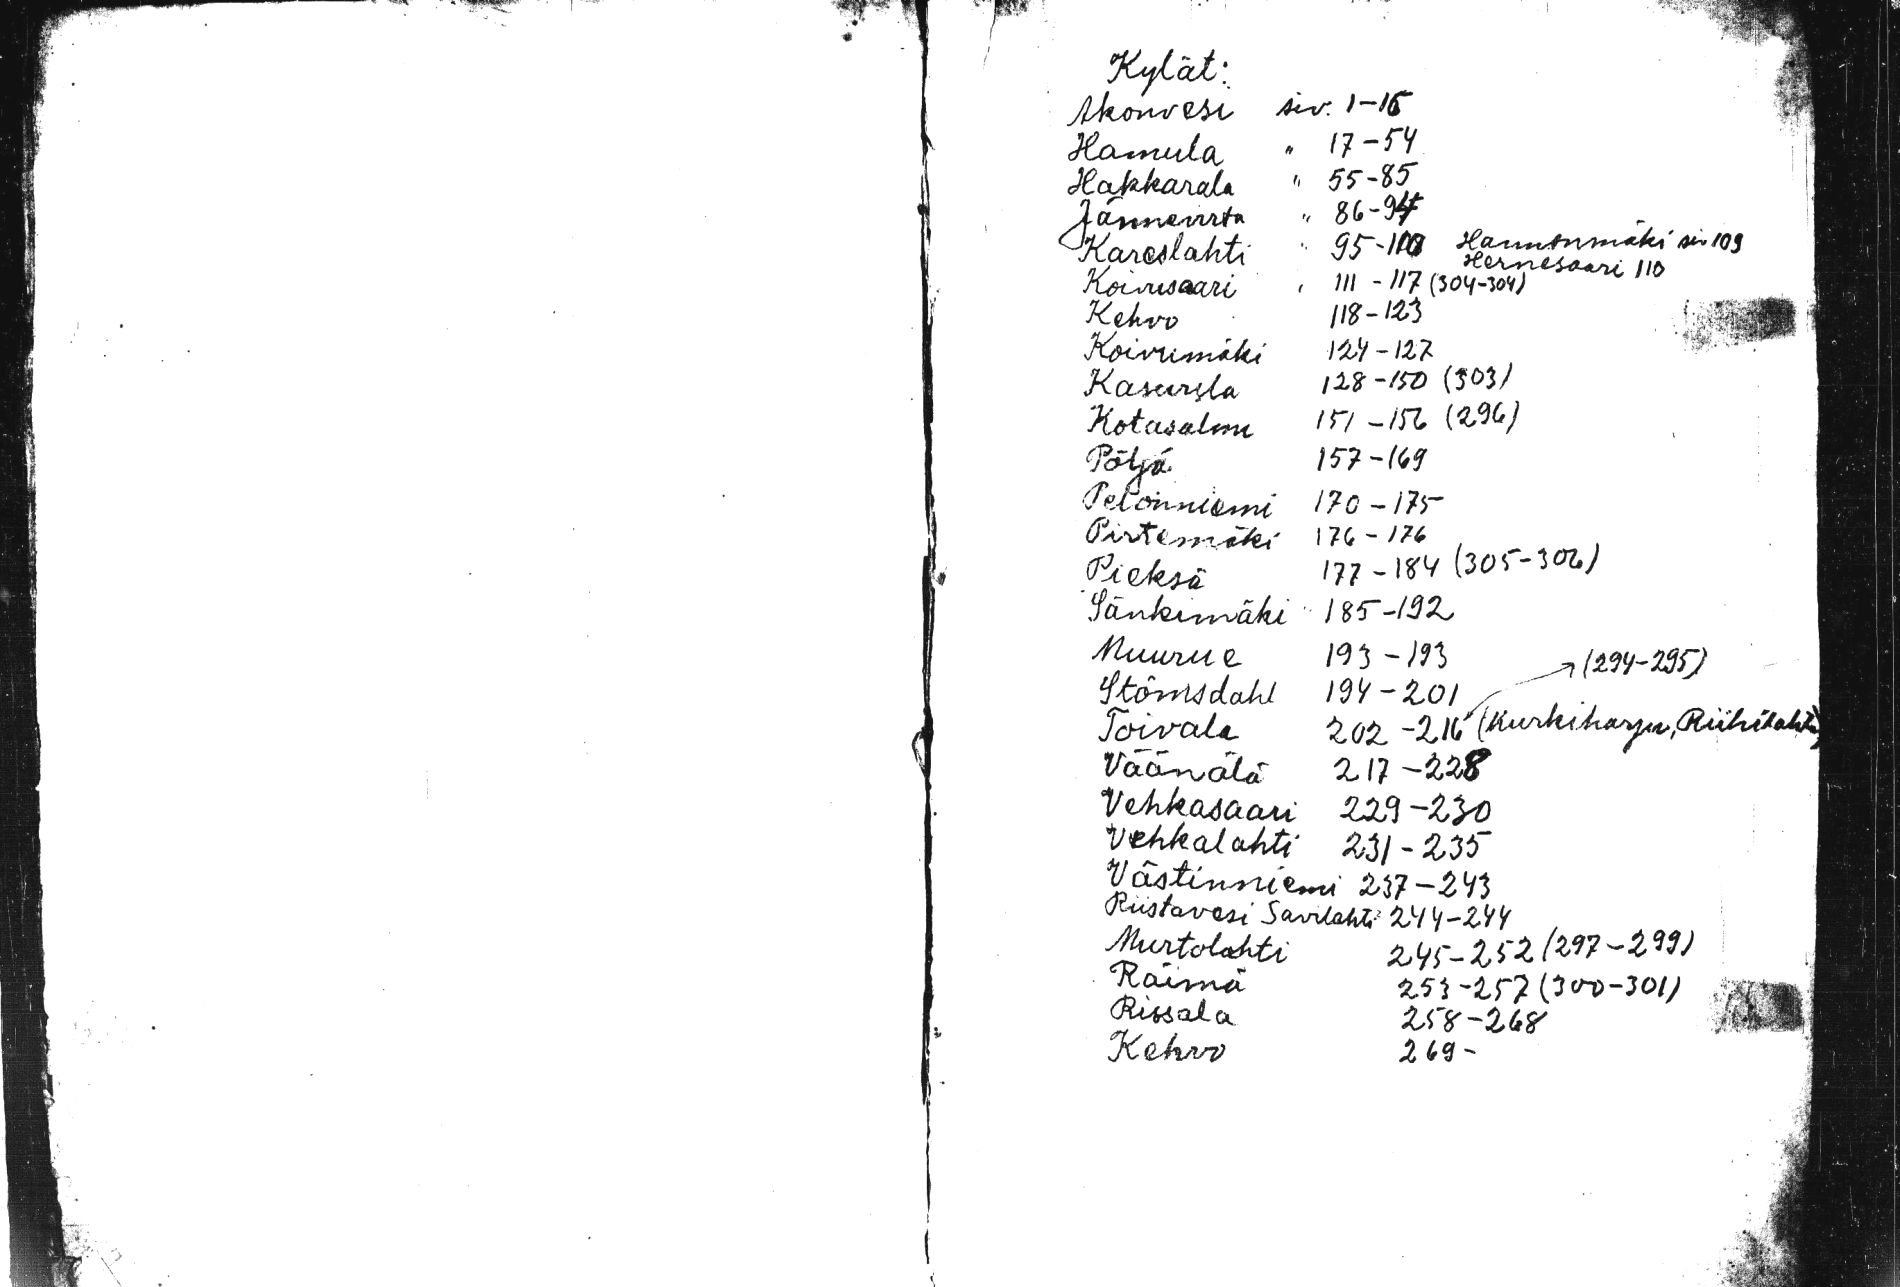 Kylät:
Akonvesi siv. 1-16
Hamula " 17-54
Hakkarala " 55-85
Jännevirta " 86-94
Kareslahti " 95-110 Hannonmäki siv 109
Hernesaari 110
Koivusaari " 111-117 (304-304)
Kehvo 118-123
Koivumäki 124-127
Kasurila 128-150 (303)
Kotasalmi 151-156 (296)
Pöljä 157-169
Pelonniemi 170-175
Pirtemäki 176-176
Pieksä 177-184 (305-306)
Sänkimäki " 185-192
Muurue 193-193
(294-295)
Stömsdahl 194-201
Toivala 202-216 (Kurkiharju, Riihilahti)
Väänälä 217-228
Vehkasaari 229-230
Vehkalahti 231-235
Västinniemi 237-243
Riistavesi Savilahti 244-244
Murtolahti 245-252 (297-299)
Räimä 253-257 (300-301)
Rissala 258-268
Kehvo 269-